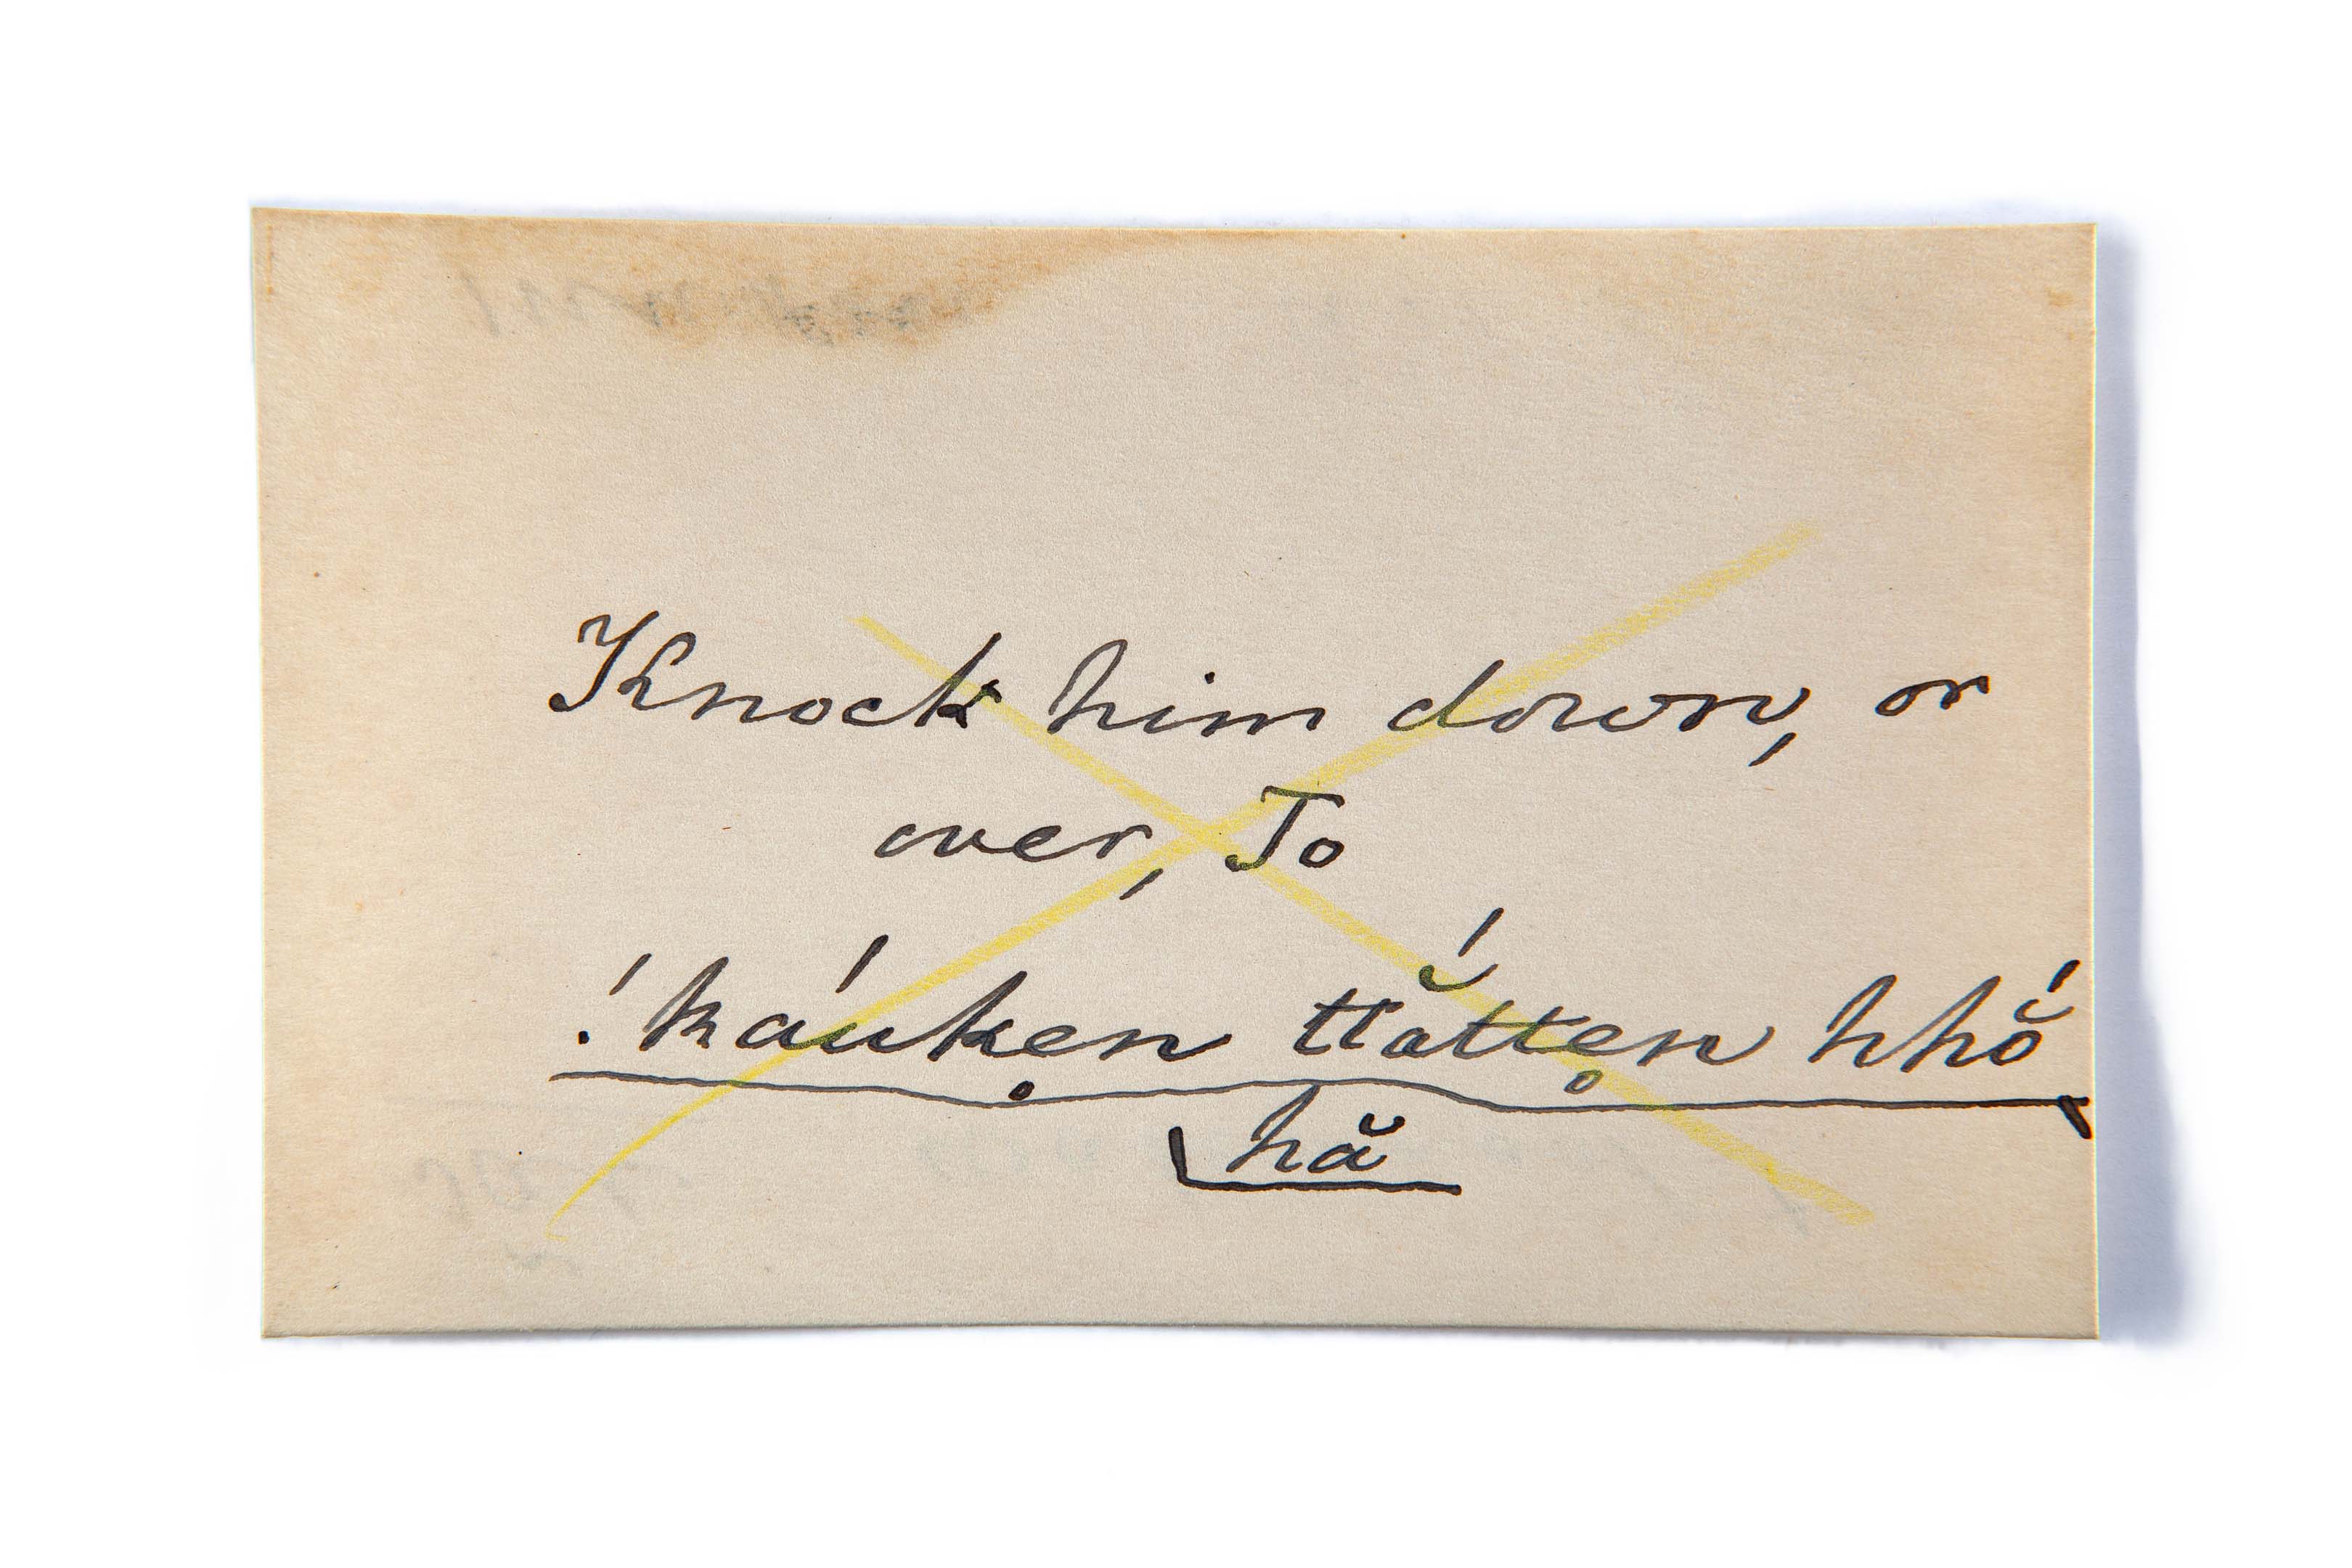 Knock him down, or
over, To
!káuk̥en ttắtte̥n hhŏ́
hă